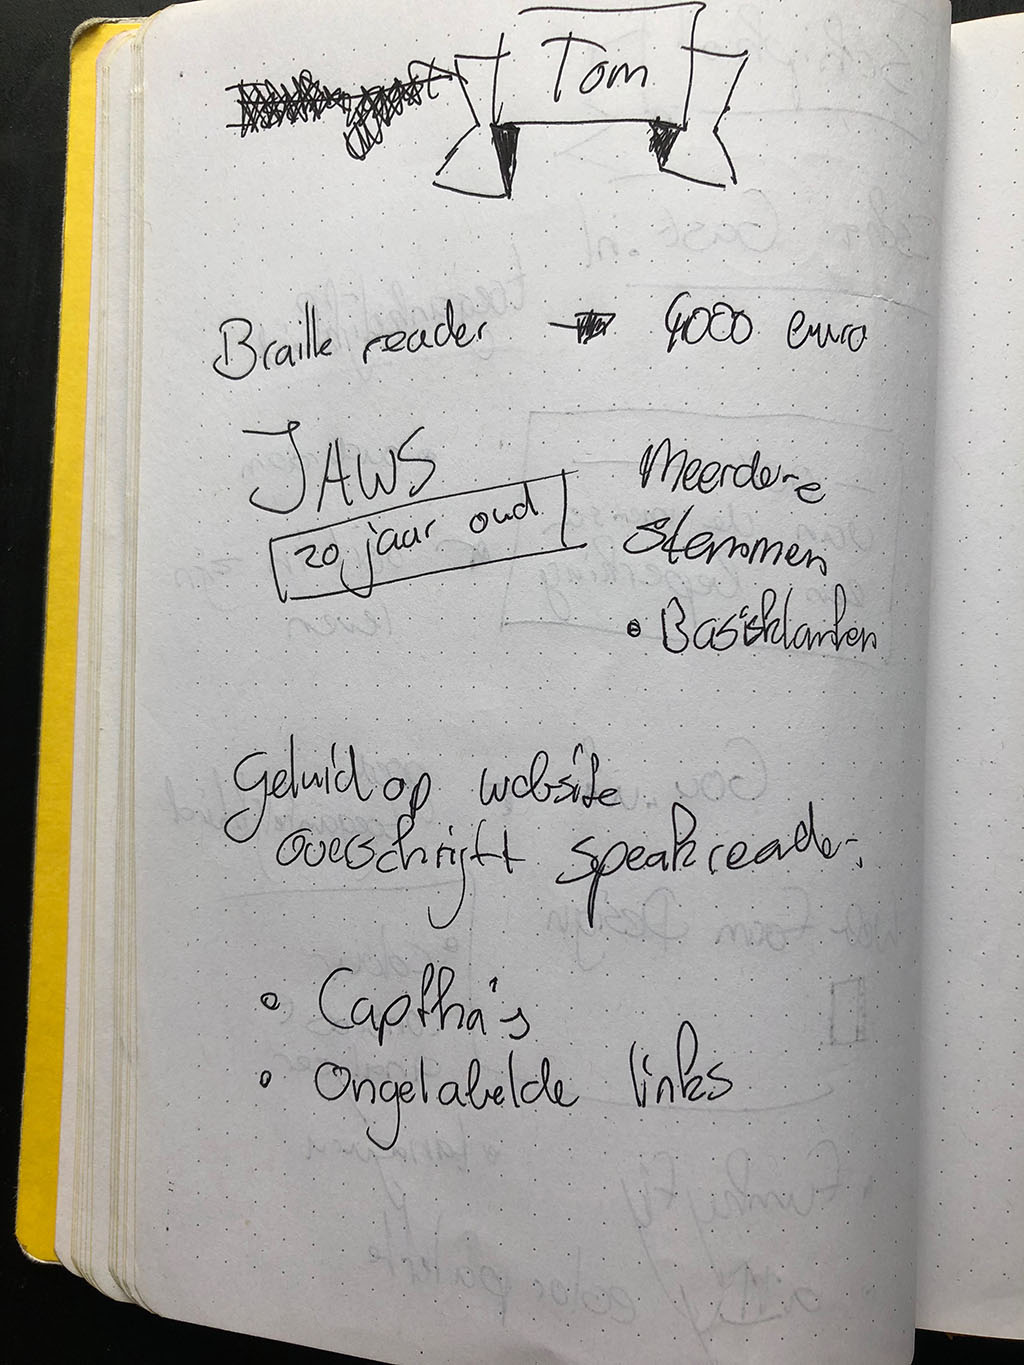 Tom
Braille reader → 4000 euro
JAWS
20 jaar oud
Meerdere
stemmen
• Basisklanken
Geluid op website
overschrijft speakreader.
• Capthha's
• Ongelabelde links